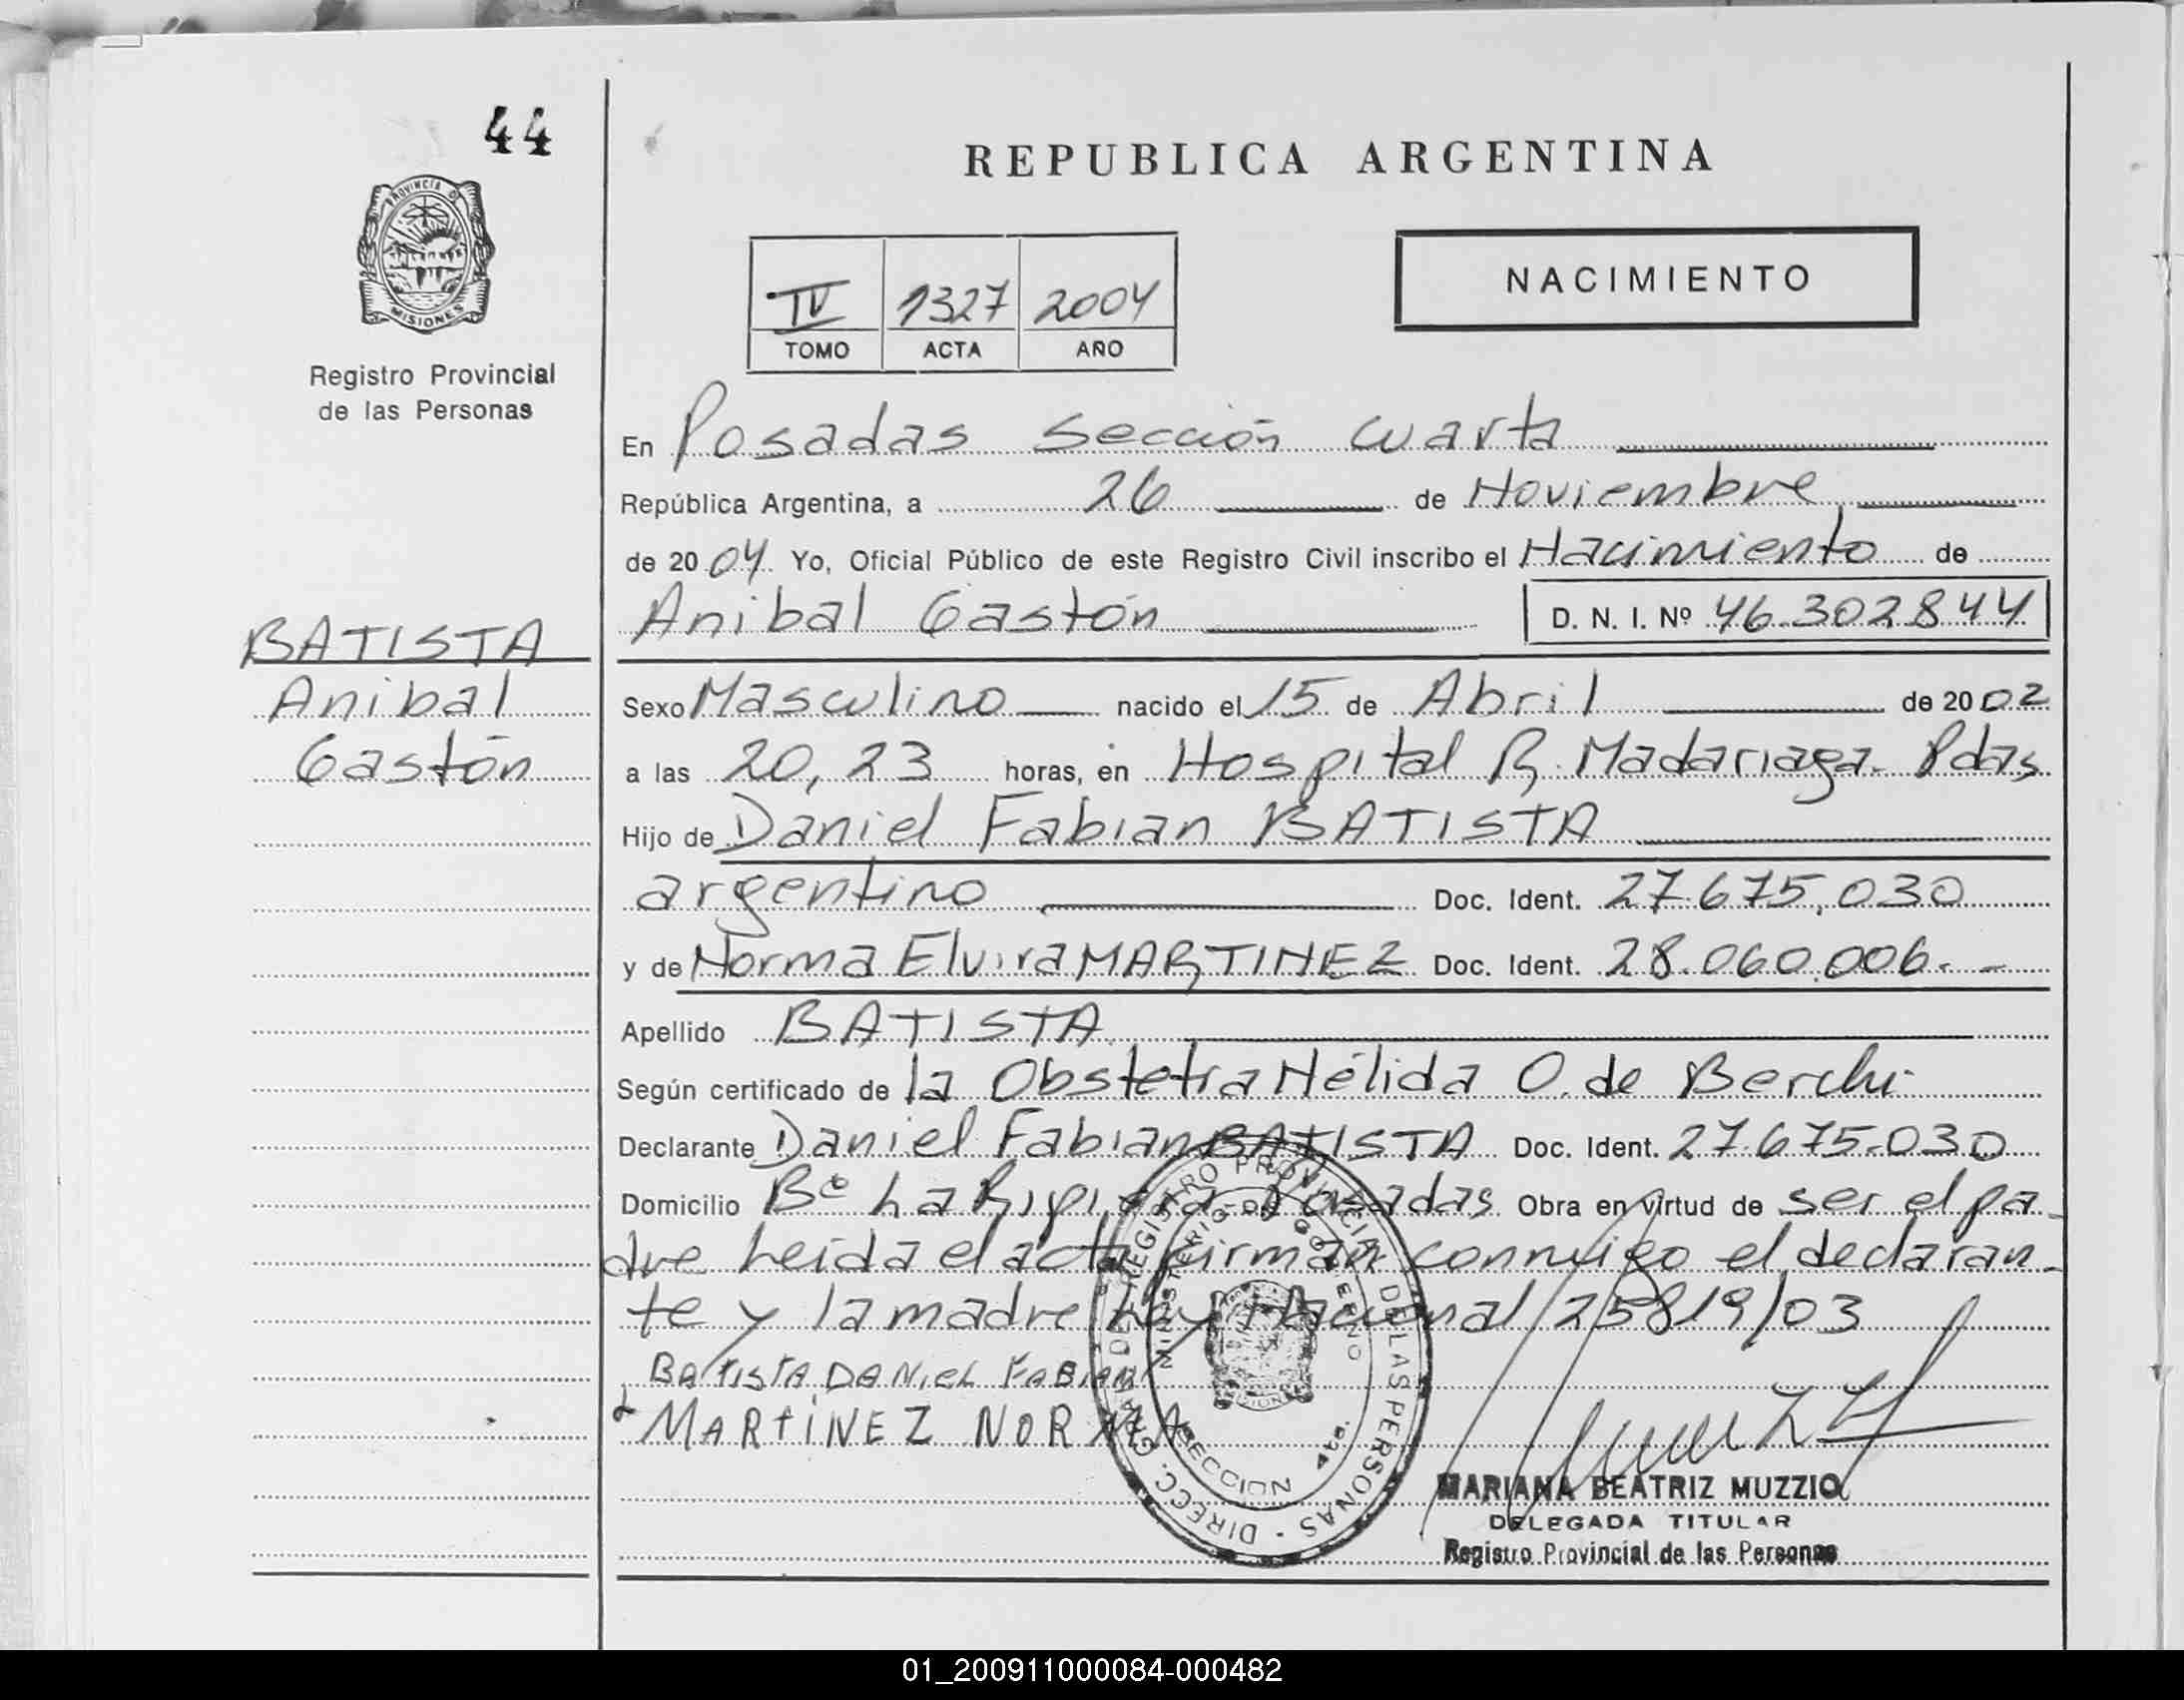 44
PROVINCIA DE
MISIONES
Registro Provincial
de las Personas
REPUBLICA ARGENTINA
IV 1327 2004
TOMO ACTA AÑO
NACIMIENTO
En Posadas Sección cuarta
República Argentina, a 26 de Noviembre
de 2004 Yo, Oficial Público de este Registro Civil inscribo el Nacimiento de
Anibal Gastón D. N. I. Nº 46.302.844
BATISTA
Anibal
Gastón
Sexo Masculino nacido el 15 de Abril de 2002
a las 20,23 horas, en Hospital R. Madariaga. Pdas
Hijo de Daniel Fabian BATISTA
argentino Doc. Ident. 27.675.030
y de Norma Elvira MARTINEZ Doc. Ident. 28.060.006.-
Apellido BATISTA
Según certificado de la Obstetra Nélida O. de Berchi
Declarante Daniel Fabian BATISTA Doc. Ident. 27.675.030
Domicilio Bº La Ripiera-Posadas Obra en virtud de ser el pa-
dre Leida el acta firman conmigo el declaran-
te y la madre Ley Nacional 25819/03
BATISTA DANIEL FABIAN
MARTINEZ NORMA
DIRECC. GRAL. DEL REGISTRO PROVINCIAL DE LAS PERSONAS
MINISTERIO DE GOBIERNO
SECCION 4ta.
MARIANA BEATRIZ MUZZIO
DELEGADA TITULAR
Registro Provincial de las Personas
01_200911000084-000482